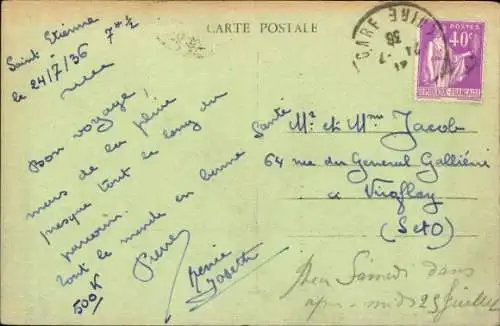 CARTE POSTALE
Saint Etienne
le 24/7/36 7H ½
Bon voyage,
mais de la pluie
presque tout le long du
parcours.
Tout le monde en bonne santé
500K
Pierre
GARE
36
POSTES
40c
Mr et Mme Jacob
64 rue du General Galliéni
a Viroflay
(S et O)
Samedi dans
25 juillet